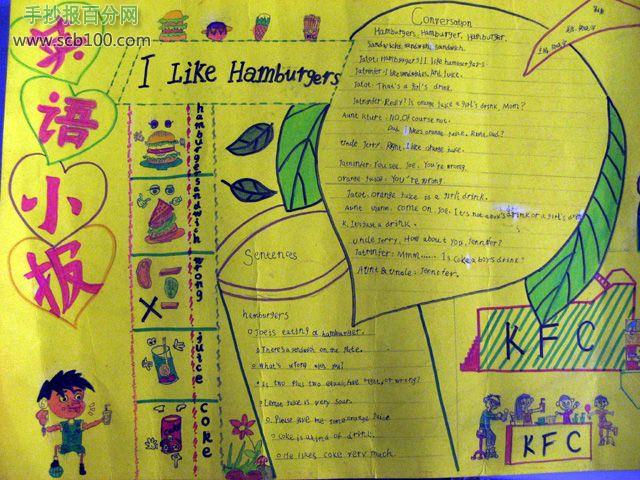 手抄报百分网
www.scb100.com
英
语
小
报
I Like Hamburgers
hamburger
sandwich
wrong
juice
coke
Conversation
Hamburgers, Hamburger, Hamburger.
Sandwichs, sandwich, sandwich.
Hamburgers! I like hamburgers.
I like sandwiches, and juice.
That's a girl's drink.
Really? Is orange juice a girl's drink, Mom?
Aunt No. Of course not.
Dad likes orange juice. Right, Dad?
Uncle Jerry: Right. I like orange juice.
You see. Joe. You're wrong.
orange juice: You're wrong.
orange juice is a girl's drink.
Aunt come on, Joe. It's not a boy's drink or a girl's drink
It's just a drink.
Uncle Jerry. How about you, Jennifer?
Mmm...... Is Coke a boy's drink?
Aunt & Uncle: Jennifer.
Sentences
hamburgers
Joe is eating a hamburger.
There's a sandwich on the plate.
What's wrong with my?
Is two plus two equals right or wrong?
Lemon juice is very sour.
Please give me some orange juice
Coke is a kind of drink.
He likes coke very much.
KFC
KFC